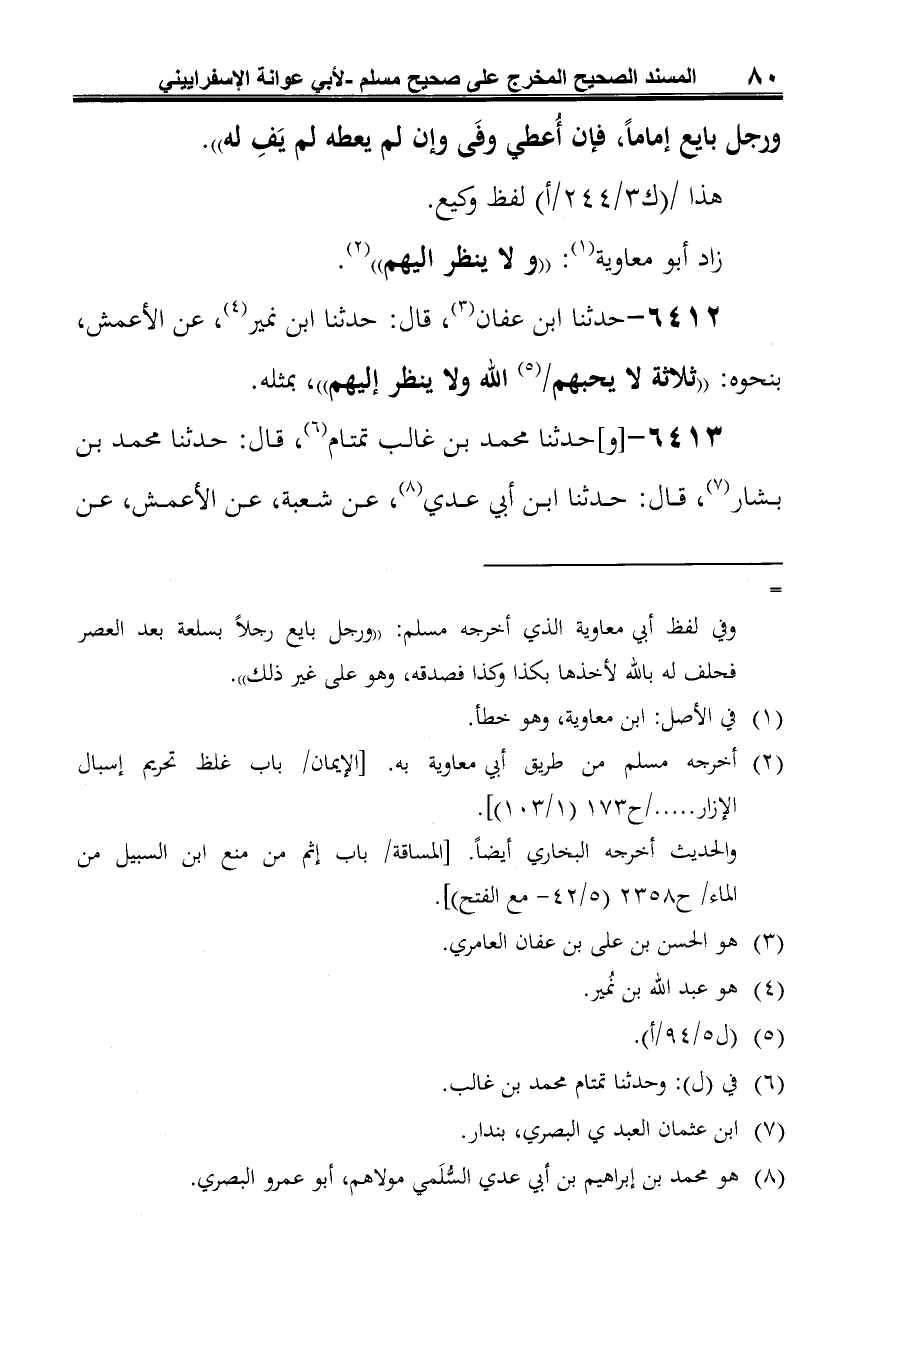 ٨٠ المسند الصحيح المخرج على صحيح مسلم -لأبي عوانة الإسفراييني
ورجل بايع إماماً، فإن أُعطي وفَى وإن لم يعطه لم يَفِ له)).
هذا /(ك٢٤٤/٣/أ) لفظ وكيع.
زاد أبو معاوية(١): ((و لا ينظر اليهم))(٢).
٦٤١٢-حدثنا ابن عفان(٣)، قال: حدثنا ابن نمير(٤)، عن الأعمش،
بنحوه: ((ثلاثة لا يحبهم/(٥) الله ولا ينظر إليهم))، بمثله.
٦٤١٣-[و]حدثنا محمد بن غالب تمتام(٦)، قال: حدثنا محمد بن
بشار(٧)، قال: حدثنا ابن أبي عدي(٨)، عن شعبة، عن الأعمش، عن
=
وفي لفظ أبي معاوية الذي أخرجه مسلم: ((ورجل بايع رجلاً بسلعة بعد العصر
فحلف له بالله لأخذها بكذا وكذا فصدقه، وهو على غير ذلك)).
(١) في الأصل: ابن معاوية، وهو خطأ.
(٢) أخرجه مسلم من طريق أبي معاوية به. [الإيمان/ باب غلظ تحريم إسبال
الإزار...../ح١٧٣ (١٠٣/١)].
والحديث أخرجه البخاري أيضاً. [المساقة/ باب إثم من منع ابن السبيل من
الماء/ ح٢٣٥٨ (٤٢/٥- مع الفتح)].
(٣) هو الحسن بن على بن عفان العامري.
(٤) هو عبد الله بن نُمير.
(٥) (ل٩٤/٥/أ).
(٦) في (ل): وحدثنا تمتام محمد بن غالب.
(٧) ابن عثمان العبد ي البصري، بندار.
(٨) هو محمد بن إبراهيم بن أبي عدي السُّلَمي مولاهم، أبو عمرو البصري.